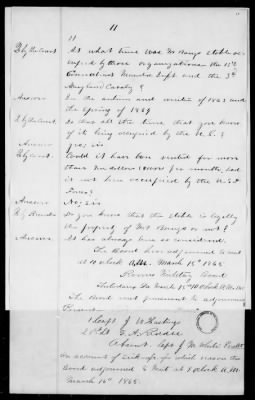 11
11
Q by the Court. At what time was Mr Bangs stable oc-
cupied by those organizations the 15th
Connecticut Mounted Inft and the 3d
Maryland Cavalry?
Answer In the autumn and winter of 1863 and
the Spring of 1864
Q by the Court. Is that all the time that you know
of its being occupied by the U.S.?
Answer Yes, sir
Q by Court. Could it have been rented for more
than dollars per months had
it not been occupied by the U.S.
Forces?
Answer No, sir
Q by Do you know that the stable is legally
the property of Mr Bangs or not?
Answer. It has always been so considered.
The Board then adjourned to meet
at 10 o'clock A.M. March 15th 1865
Military Board
March 15th 10 o'clock A.M.
The Board met pursuant to adjournment
Present
1 Capt J W Hastings
2
Absent. Capt J M White
on account of sickness for which reason the
Board adjourned to meet at o'clock A.M.
March 16th 1865.